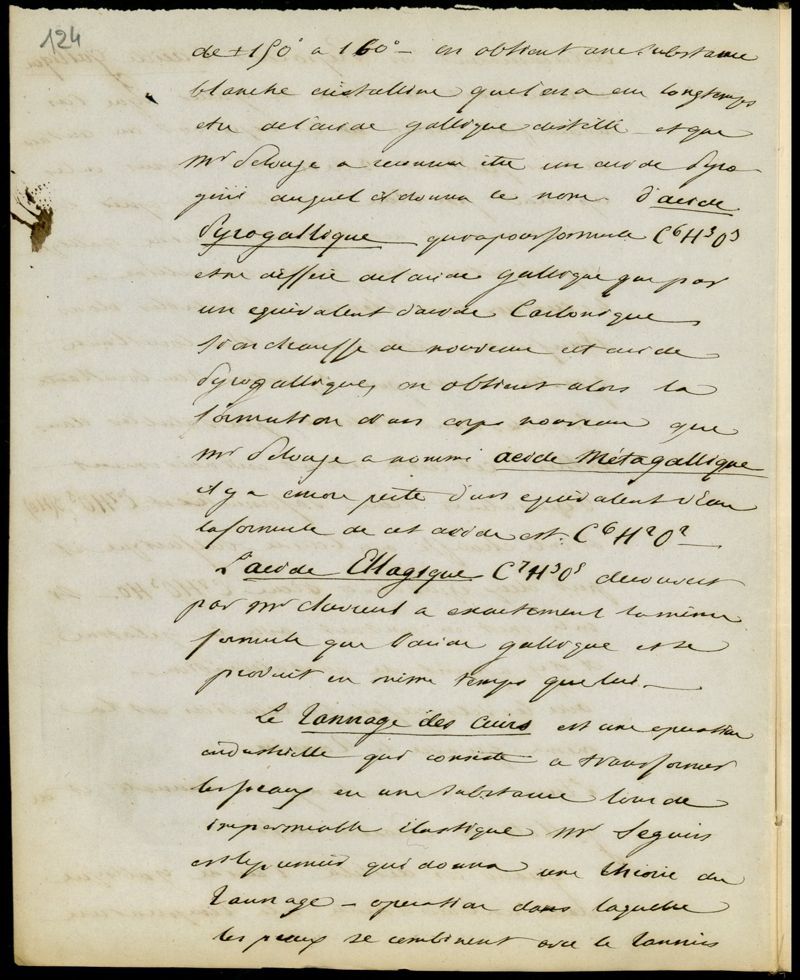 124
de +150° a 160° — on obtient une substance
blanche cristalline que l'on a cru longtemps
etre de l'acide gallique distillé — et que
Mr Pelouze a reconnu etre un acide Pyro-
géné auquel il donna le nom d'acide
Pyrogallique qui a pour formule C⁶H³O³
et ne differe de l'acide gallique que par
un equivalent d'acide Carbonique
si on chauffe de nouveau cet acide
Pyrogallique, on obtient alors la
formation d'un corps nouveau que
Mr Pelouze a nommé acide Métagallique
il y a encore perte d'un equivalent d'Eau
la formule de cet acide est: C⁶H²O² —
L'acide Ellagique C⁷H³O⁵ decouvert
par Mr Chevreul a exactement la même
formule que l'acide gallique et se
produit en même temps que lui. —
Le Tannage des Cuirs est une operation
industrielle qui consiste a transformer
les peaux en une substance lourde
impermeable élastique Mr Seguin
est le premier qui donna une théorie du
Tannage — operation dans laquelle
les peaux se combinent avec le Tannin